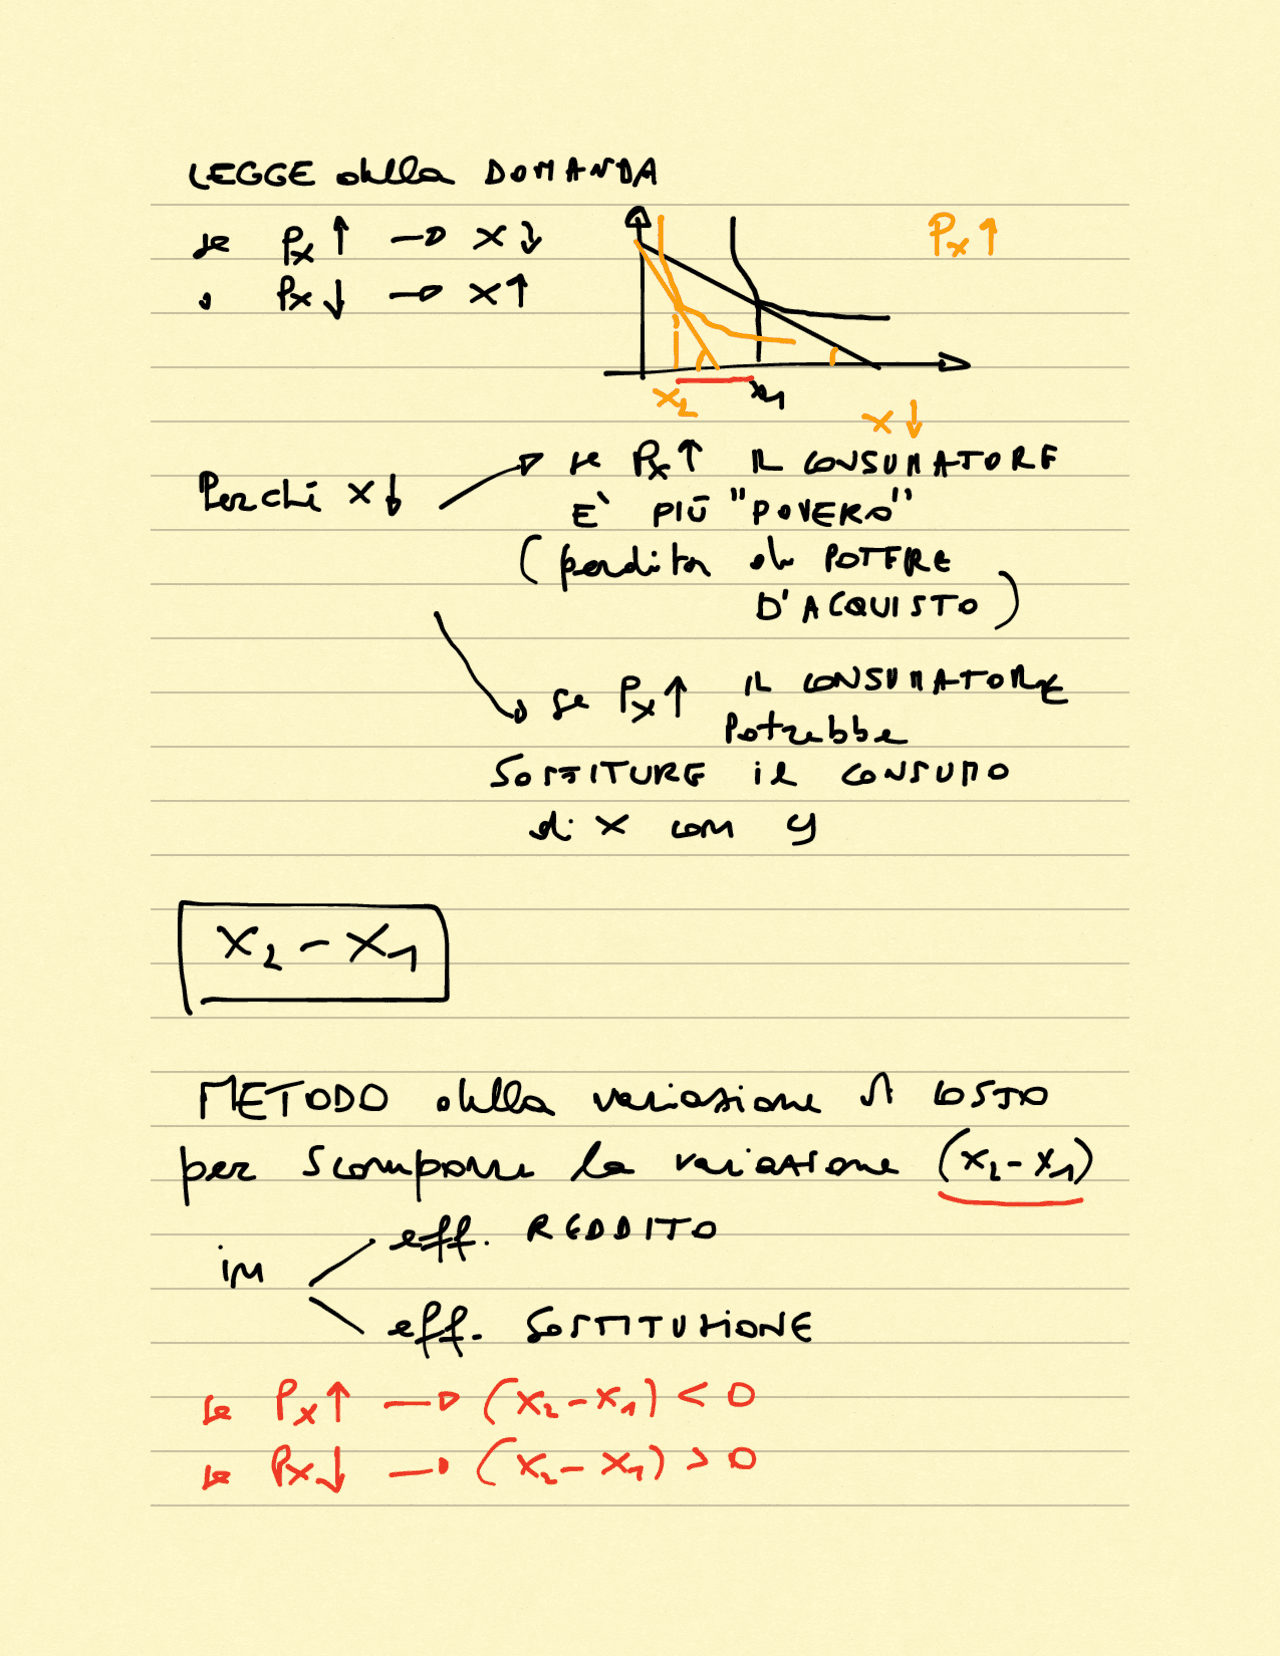 LEGGE della DOMANDA
se Px ↑ → x ↓
" Px ↓ → x ↑
Px ↑
x2 x1
x ↓
Perché x ↓
se Px ↑ IL CONSUMATORE
E' PIÙ "POVERO"
(perdita di POTERE
D'ACQUISTO)
se Px ↑ IL CONSUMATORE
Potrebbe
SOSTITURE il CONSUMO
di x con y
x2 - x1
METODO della variazione di COSTO
per scomporre la variazione (x2 - x1)
in
eff. REDDITO
eff. SOSTITUZIONE
se Px ↑ → (x2 - x1) < 0
se Px ↓ → (x2 - x1) > 0